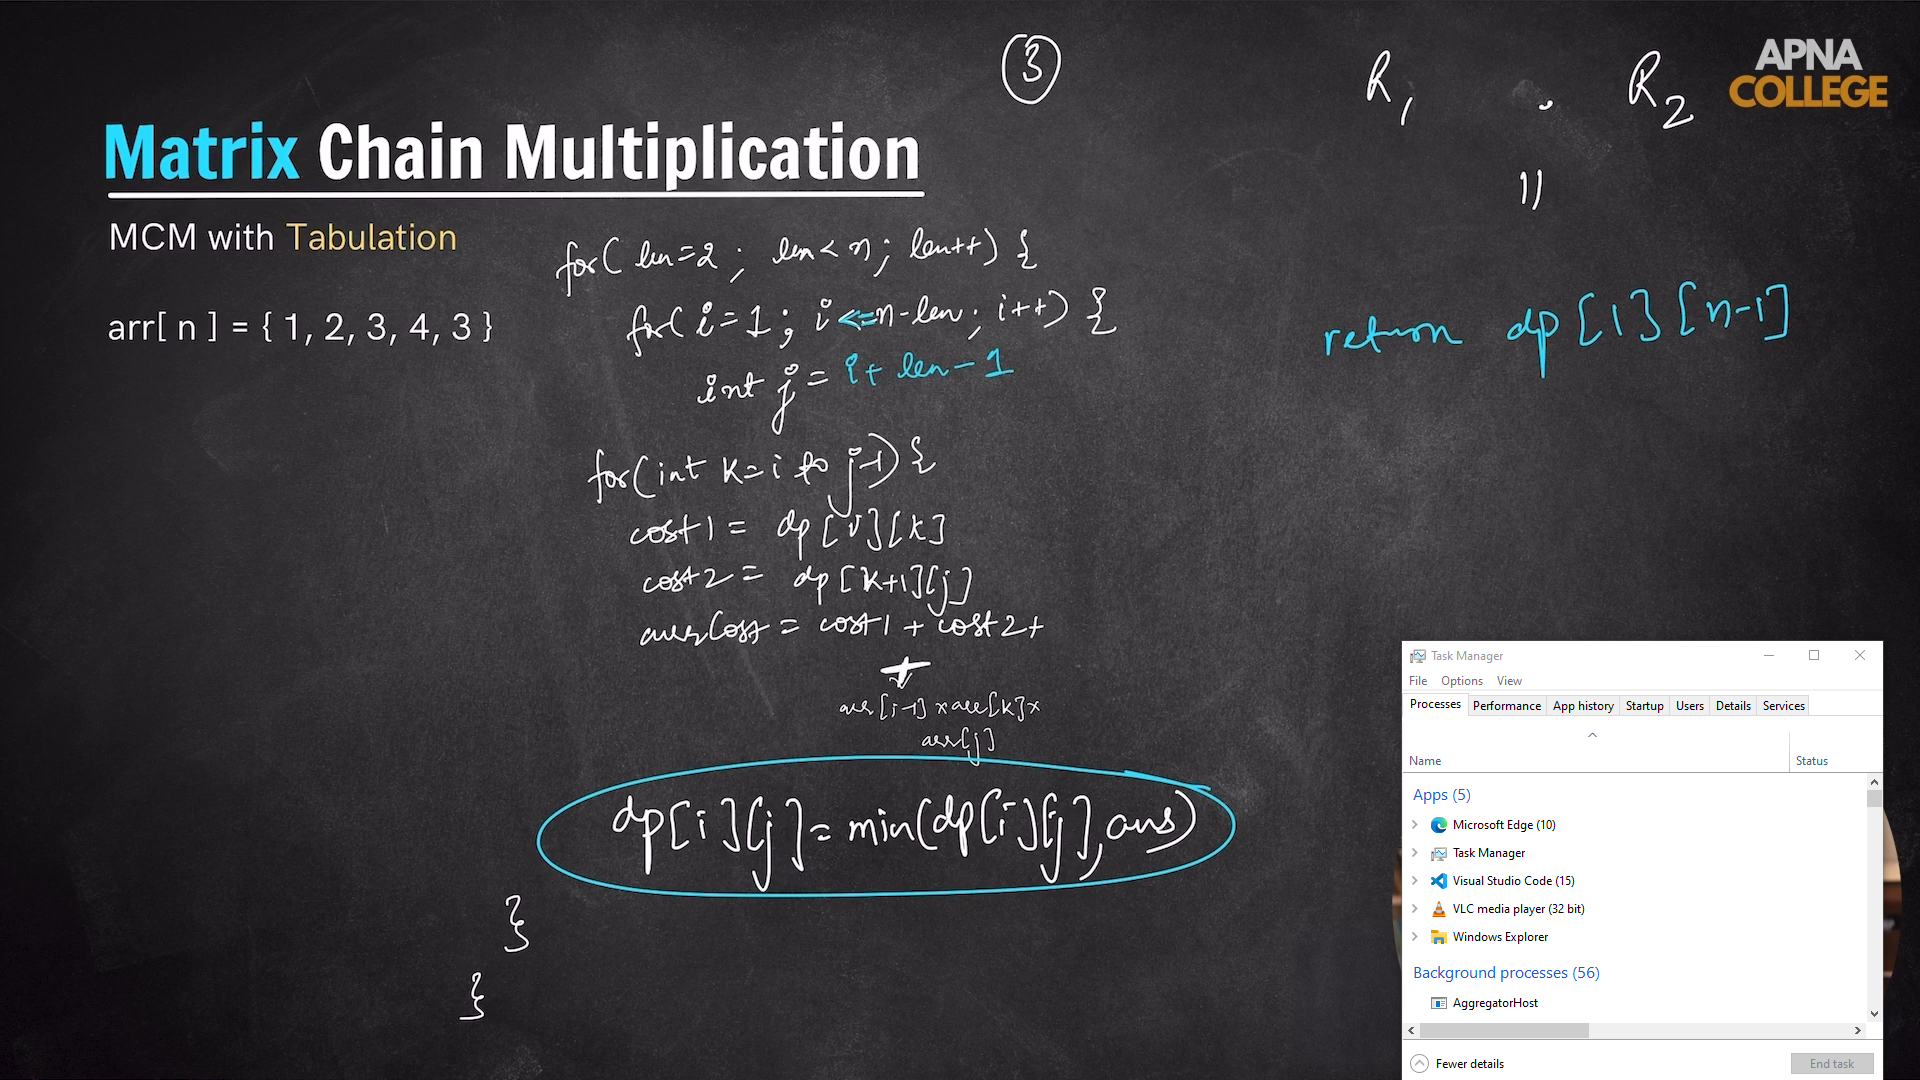 3
R1 . R2
APNA
COLLEGE
Matrix Chain Multiplication
MCM with Tabulation
arr[ n ] = { 1, 2, 3, 4, 3 }
for( len=2 ; len < n; len++) {
for( i=1 ; i <= n-len ; i++) {
int j = i+ len-1
for(int k=i to j-1) {
cost1 = dp[i][k]
cost2 = dp[k+1][j]
= cost1 + cost2 +
arr[i-1] x arr[k] x
arr[j]
dp[i][j] = min(dp[i][j], ans)
}
}
return dp[1][n-1]
Task Manager
File Options View
Processes Performance App history Startup Users Details Services
Name Status
Apps (5)
Microsoft Edge (10)
Task Manager
Visual Studio Code (15)
VLC media player (32 bit)
Windows Explorer
Background processes (56)
AggregatorHost
Fewer details End task